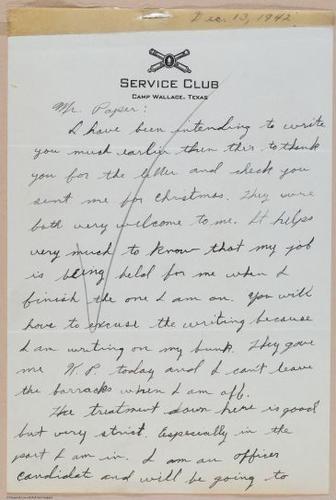 Dec. 13, 1942.
SERVICE CLUB
CAMP WALLACE, TEXAS
Mr. Paper:
I have been intending to write
you much earlier then this to thank
you for the letter and check you
sent me for Christmas. They were
both very welcome to me. It helps
very much to know that my job
is being held for me when I
finish the one I am on. You will
have to excuse the writing because
I am writing on my bunk. They gave
me K.P. today and I can't leave
the barracks when I am off.
The treatment down here is good
but very strict. Especially in the
part I am in. I am an officer
candidat and will be going to